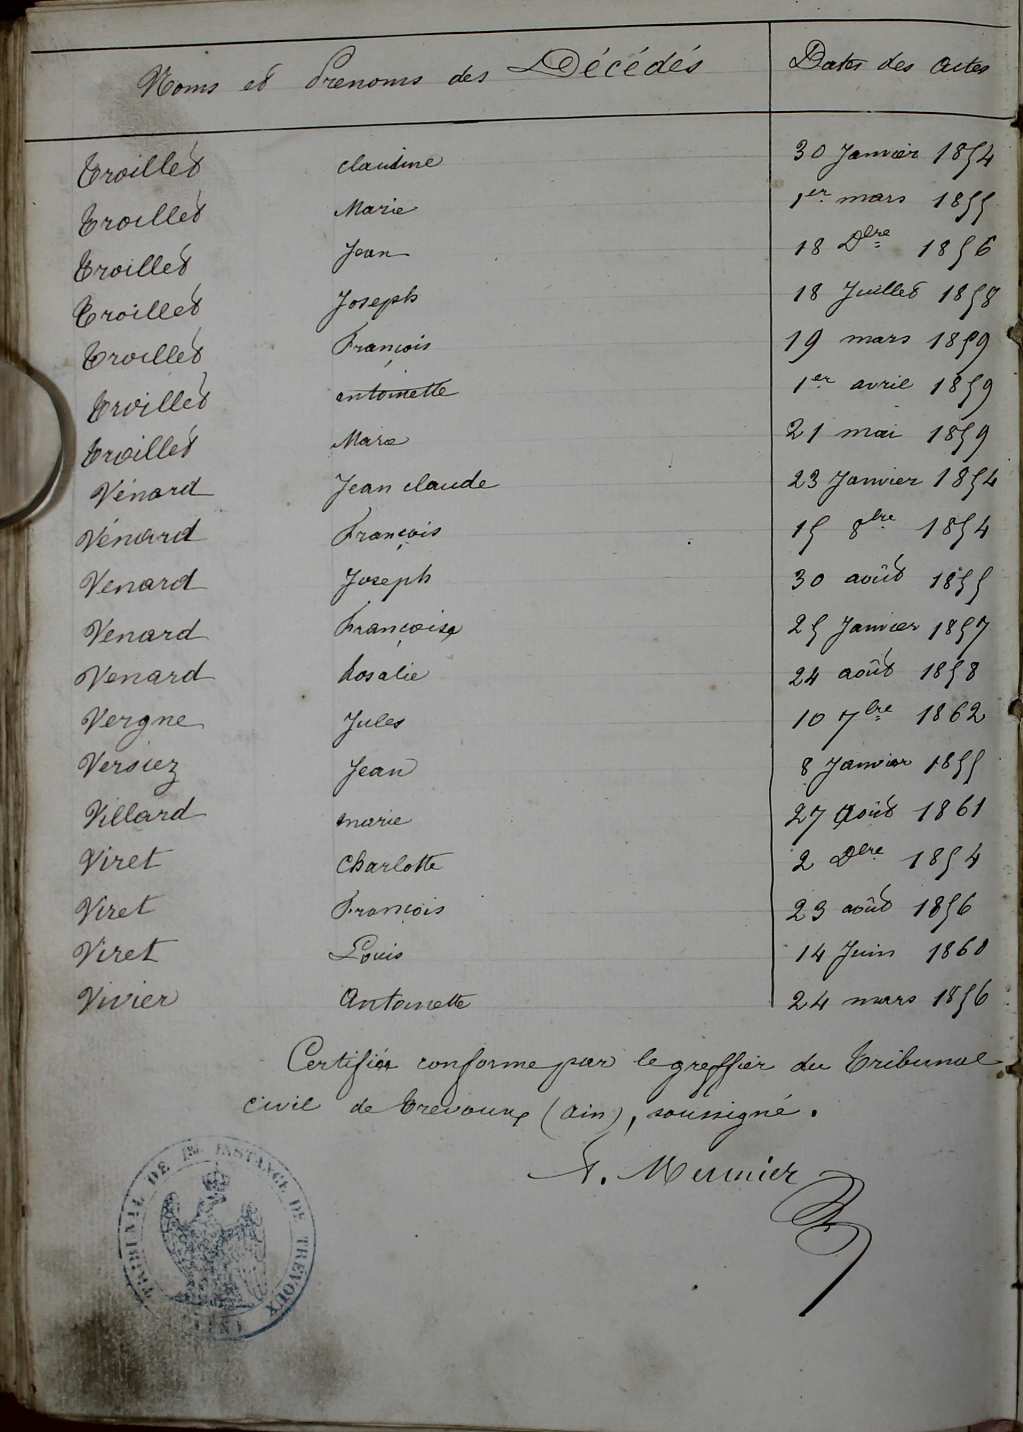 Noms et Prenoms des Décédés Dates des Actes
Troillet claudine 30 Janvier 1854
Troillet Marie 1er mars 1855
Troillet Jean 18 Dbre 1856
Troillet Joseph 18 Juillet 1858
Troillet François 19 mars 1859
Troillet antoinette 1er avril 1859
Troillet Marie 21 mai 1859
Vénard Jean claude 23 Janvier 1854
Vénard François 15 8bre 1854
Venard Joseph 30 août 1855
Venard Françoise 25 Janvier 1857
Venard Rosalie 24 août 1858
Vergne Jules 10 7bre 1862
Versiez Jean 8 Janvier 1855
Villard marie 27 Août 1861
Viret Charlotte 2 Dbre 1854
Viret François 23 août 1856
Viret Louis 14 Juin 1860
Vivier Antoinette 24 mars 1856
Certifiée conforme par le greffier du Tribunal
civil de Trevoux (ain), soussigné.
Meunier
TRIBUNAL DE 1re INSTANCE DE TRÉVOUX